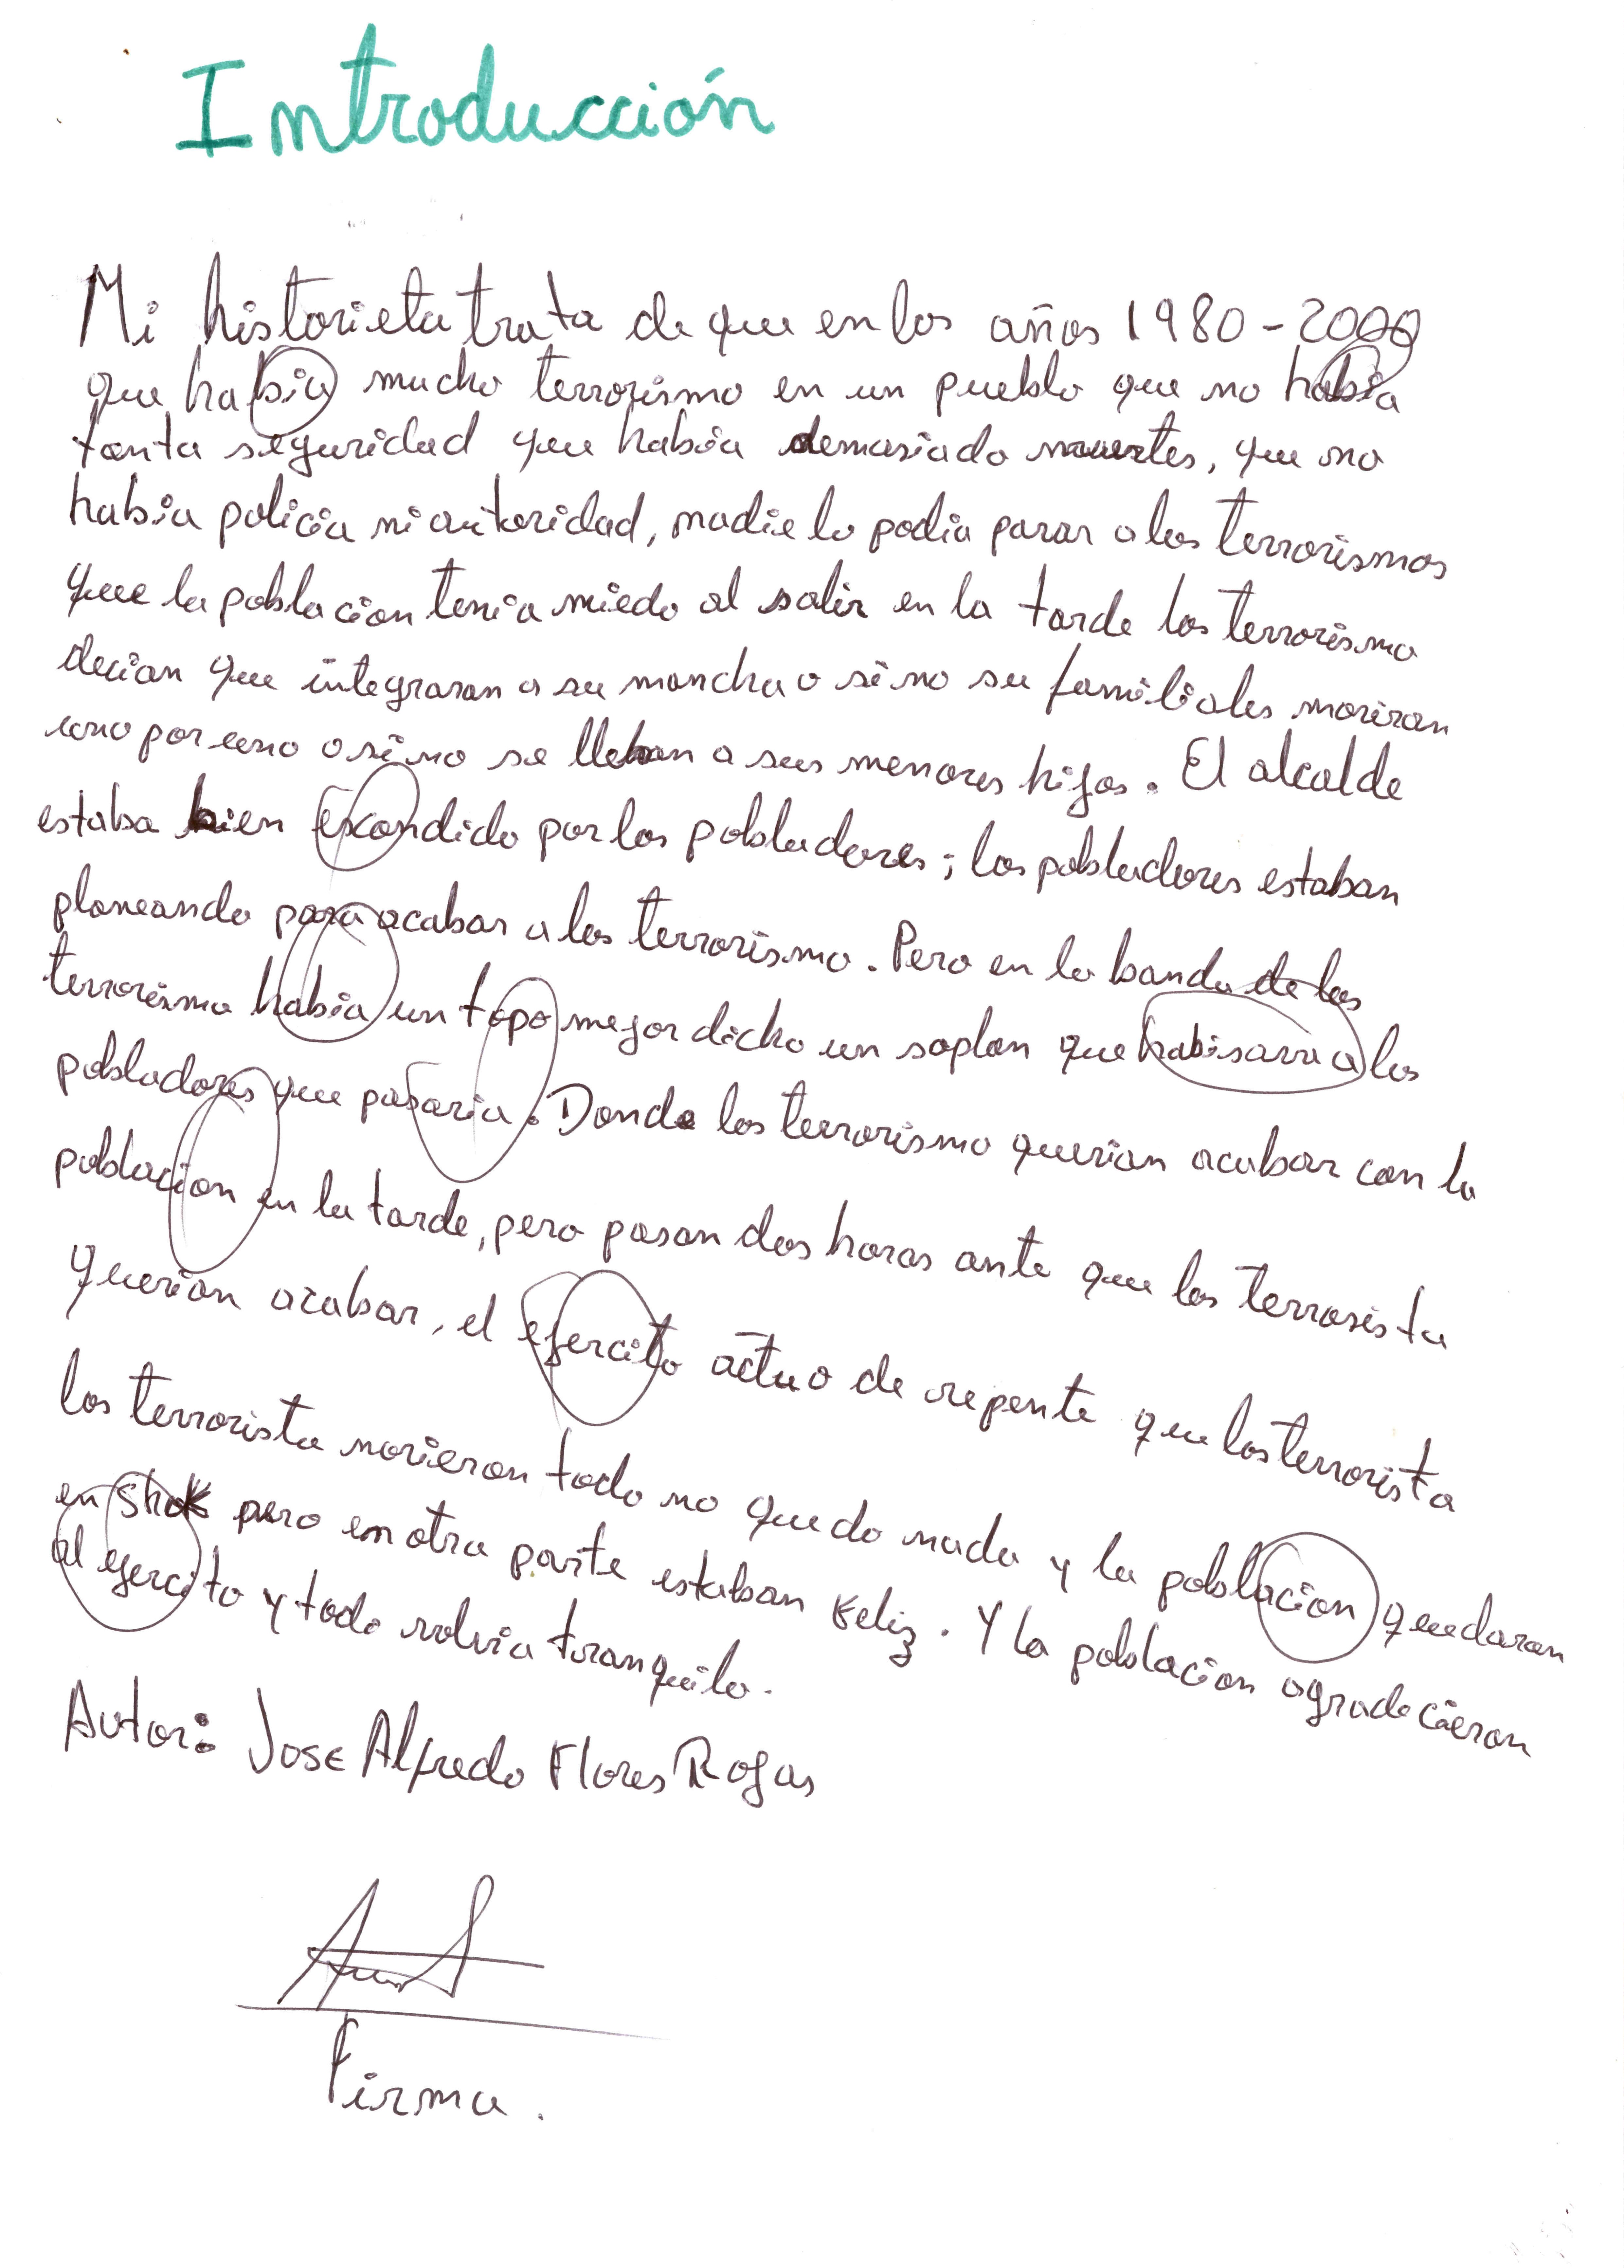 Introducción
Mi historieta trata de que en los años 1980-2000
que habia mucho terrorismo en un pueblo que no habia
tanta seguridad que habia demasiado muertes, que no
habia policia ni autoridad, nadie lo podia parar a los terrorismos
que la poblacion tenia miedo al salir en la tarde los terrorismo
decian que integraran a su mancha o si no su familiales moriran
uno por uno o si no se lleban a sus menores hijos. El alcalde
estaba bien escondido por los pobladores; los pobladores estaban
planeando para acabar a los terrorismo. Pero en la banda de los
terrorismo habia un topo mejor dicho un soplon que habisarra a los
pobladores que pasaria. Donde los terrorismo querian acabar con la
poblacion en la tarde, pero pasan dos horas ante que los terrosista
querian acabar, el ejercito actuo de repente que los terrorista
los terrorista morieron todo no quedo nada y la poblacion quedaran
en shok pero en otra parte estaban Feliz. Y la poblacion agradecieron
al ejercito y todo volvia tranquilo.
Autor: Jose Alfredo Flores Rojas
Firma.